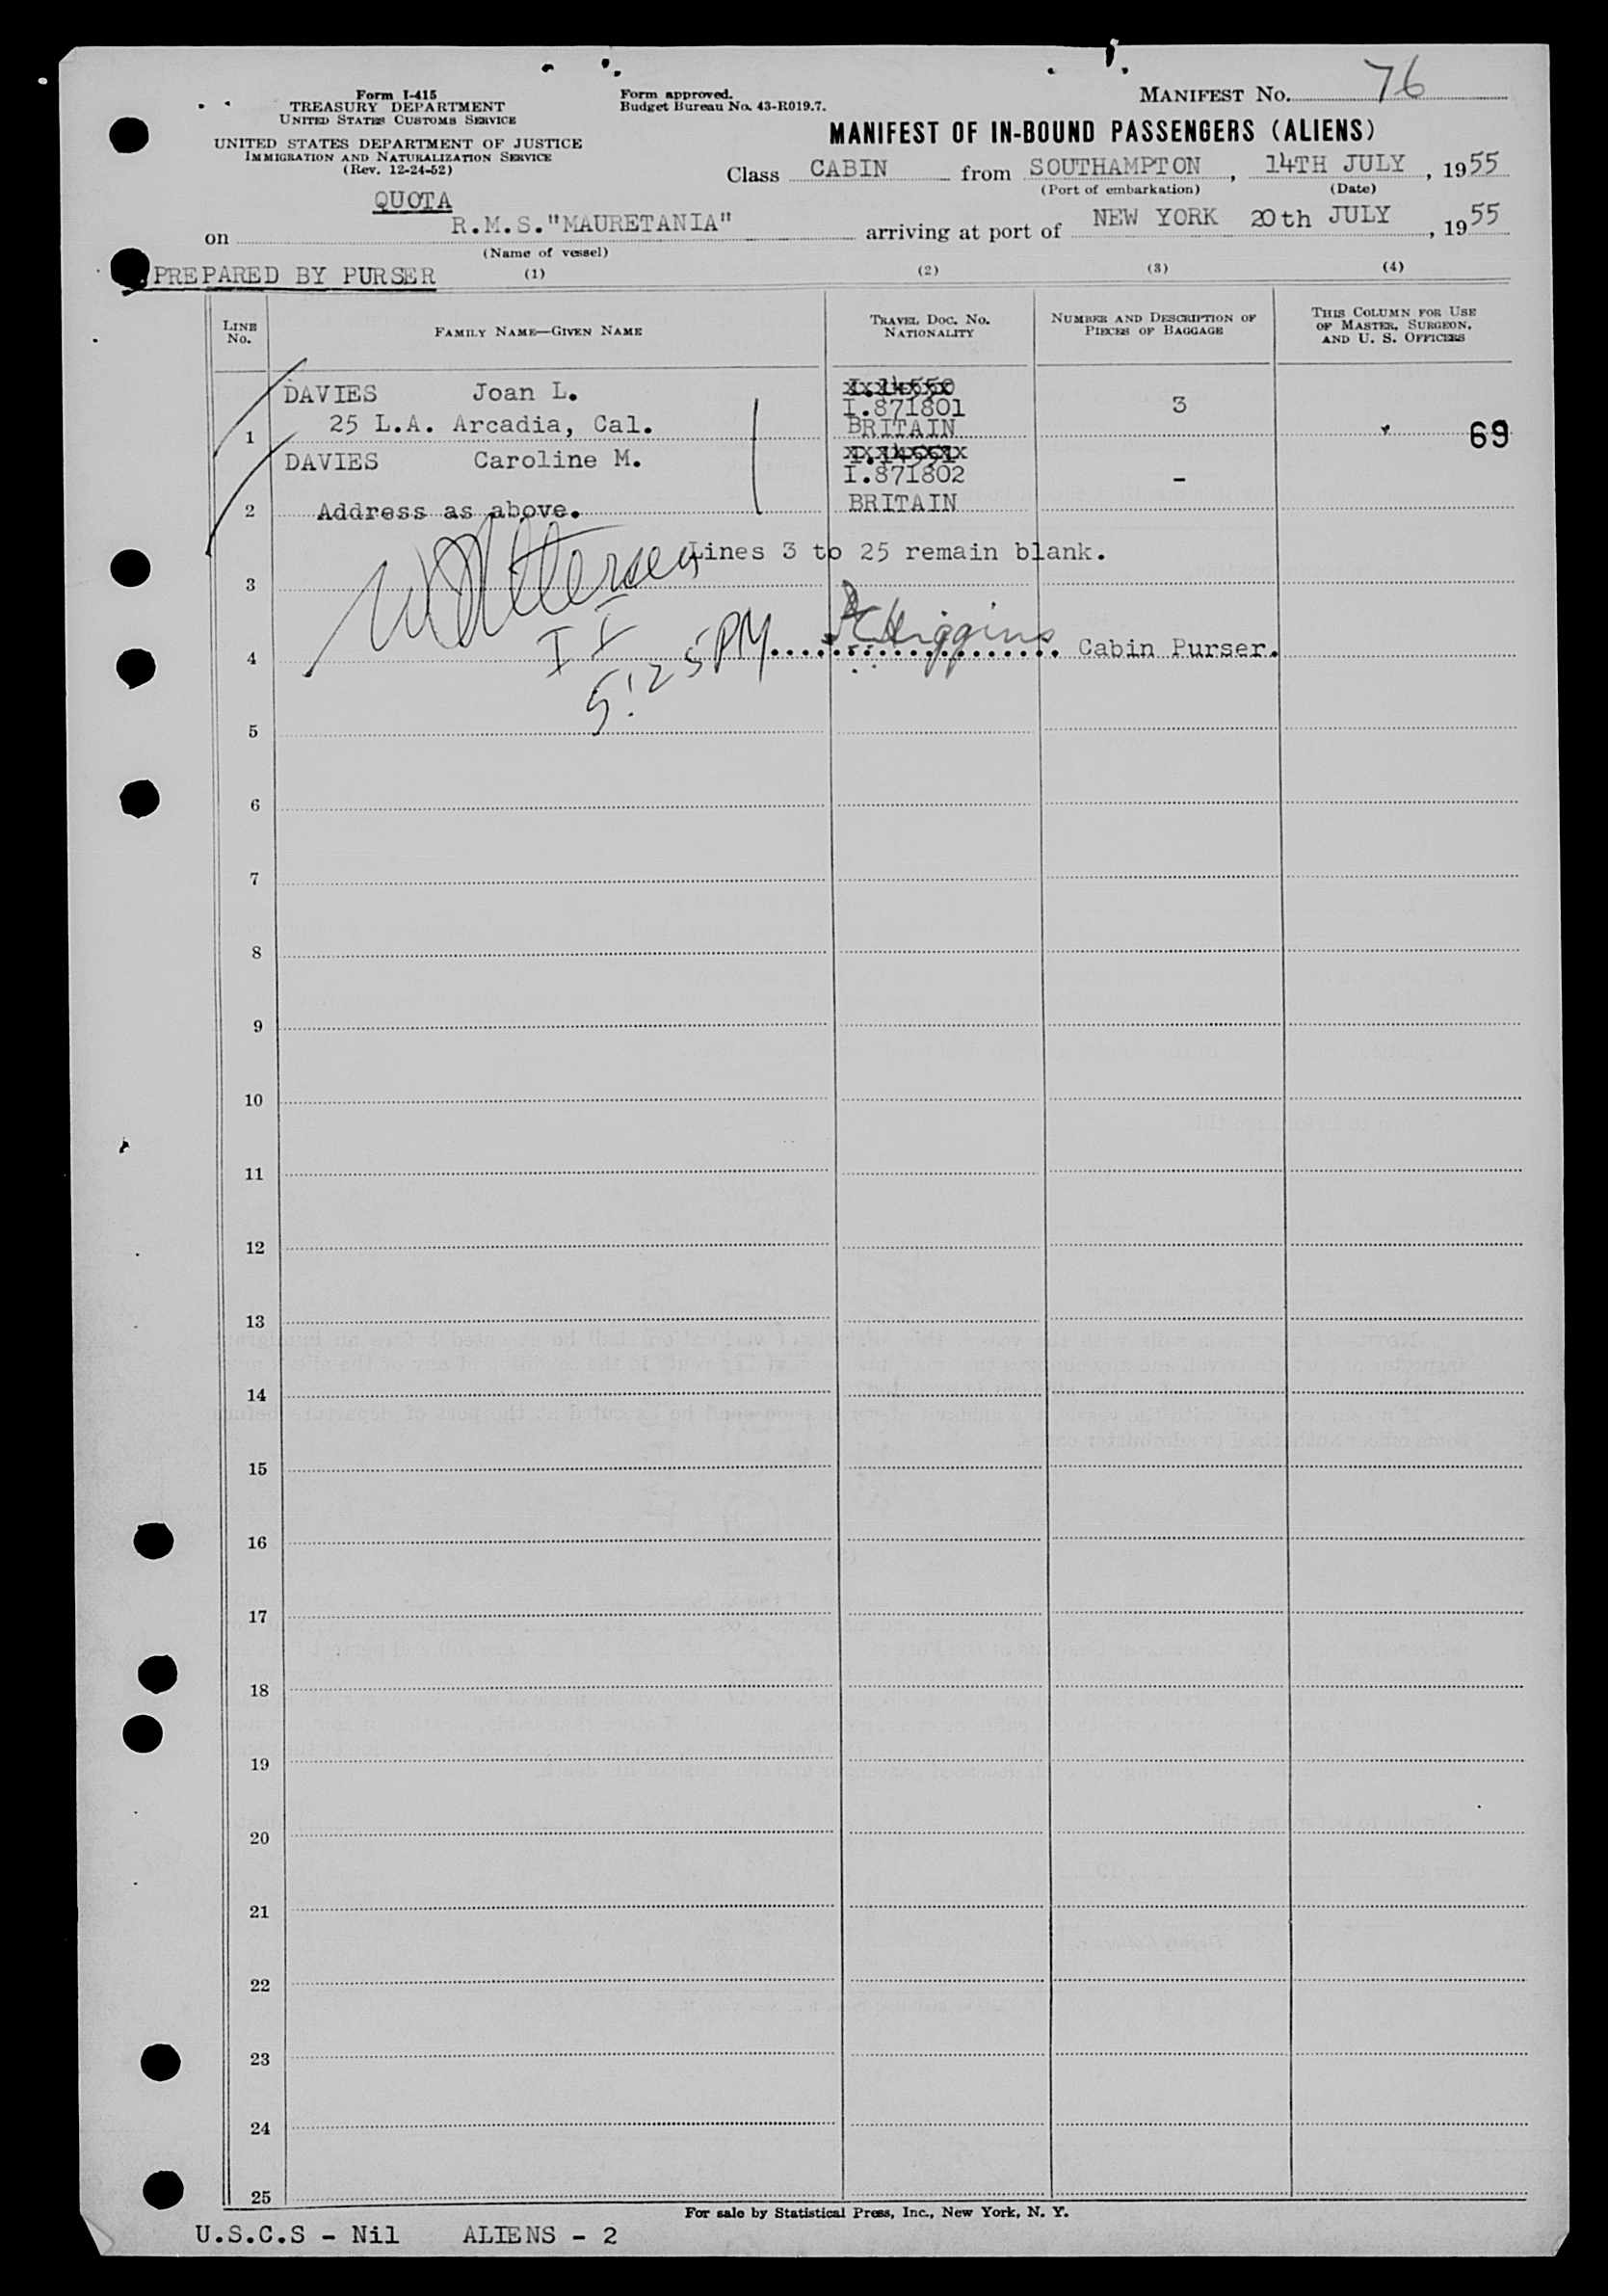 Form I-415
TREASURY DEPARTMENT
UNITED STATES CUSTOMS SERVICE
UNITED STATES DEPARTMENT OF JUSTICE
IMMIGRATION AND NATURALIZATION SERVICE
(Rev. 12-24-52)
Form approved.
Budget Bureau No. 43-R019.7.
MANIFEST No. 76
MANIFEST OF IN-BOUND PASSENGERS (ALIENS)
Class CABIN from SOUTHAMPTON, 14TH JULY, 1955
(Port of embarkation) (Date)
QUOTA
on R.M.S."MAURETANIA" arriving at port of NEW YORK 20th JULY, 1955
(Name of vessel)
PREPARED BY PURSER
(1) (2) (3) (4)
LINE No. FAMILY NAME—GIVEN NAME TRAVEL DOC. No. NATIONALITY NUMBER AND DESCRIPTION OF PIECES OF BAGGAGE THIS COLUMN FOR USE OF MASTER, SURGEON, AND U. S. OFFICERS
DAVIES Joan L. I.871801 3
1 25 L.A. Arcadia, Cal. BRITAIN 69
DAVIES Caroline M. I.871802 -
2 Address as above. BRITAIN
Lines 3 to 25 remain blank.
3
I I
4 Higgins Cabin Purser.
5:25 PM
5
6
7
8
9
10
11
12
13
14
15
16
17
18
19
20
21
22
23
24
25
For sale by Statistical Press, Inc., New York, N. Y.
U.S.C.S - Nil ALIENS - 2